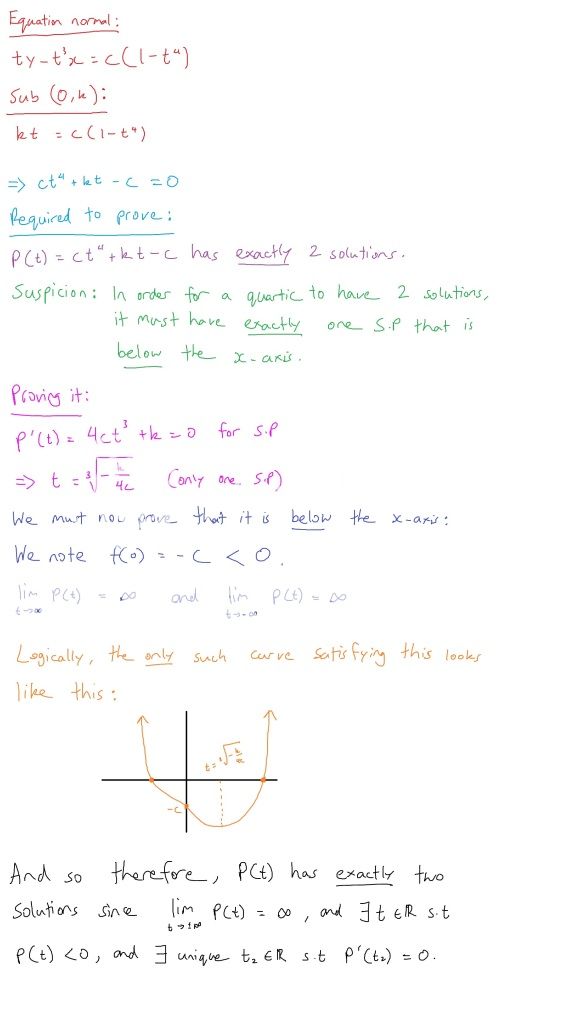 Equation normal:
ty - t³x = c(1-t⁴)
Sub (0,k):
kt = c(1-t⁴)
=> ct⁴ + kt - c = 0
Required to prove:
P(t) = ct⁴ + kt - c has exactly 2 solutions.
Suspicion: In order for a quartic to have 2 solutions,
it must have exactly one S.P that is
below the x-axis.
Proving it:
P'(t) = 4ct³ + k = 0 for S.P
=> t = ³√(-k/4c) (only one S.P)
We must now prove that it is below the x-axis:
We note f(0) = -c < 0.
lim t→∞ P(t) = ∞ and lim t→-∞ P(t) = ∞
Logically, the only such curve satisfying this looks
like this:
t = ³√(-k/4c)
-c
And so therefore, P(t) has exactly two
solutions sine lim t→±∞ P(t) = ∞, and ∃ t ∈ ℝ s.t
P(t) < 0, and ∃ unique t₂ ∈ ℝ s.t P'(t₂) = 0.